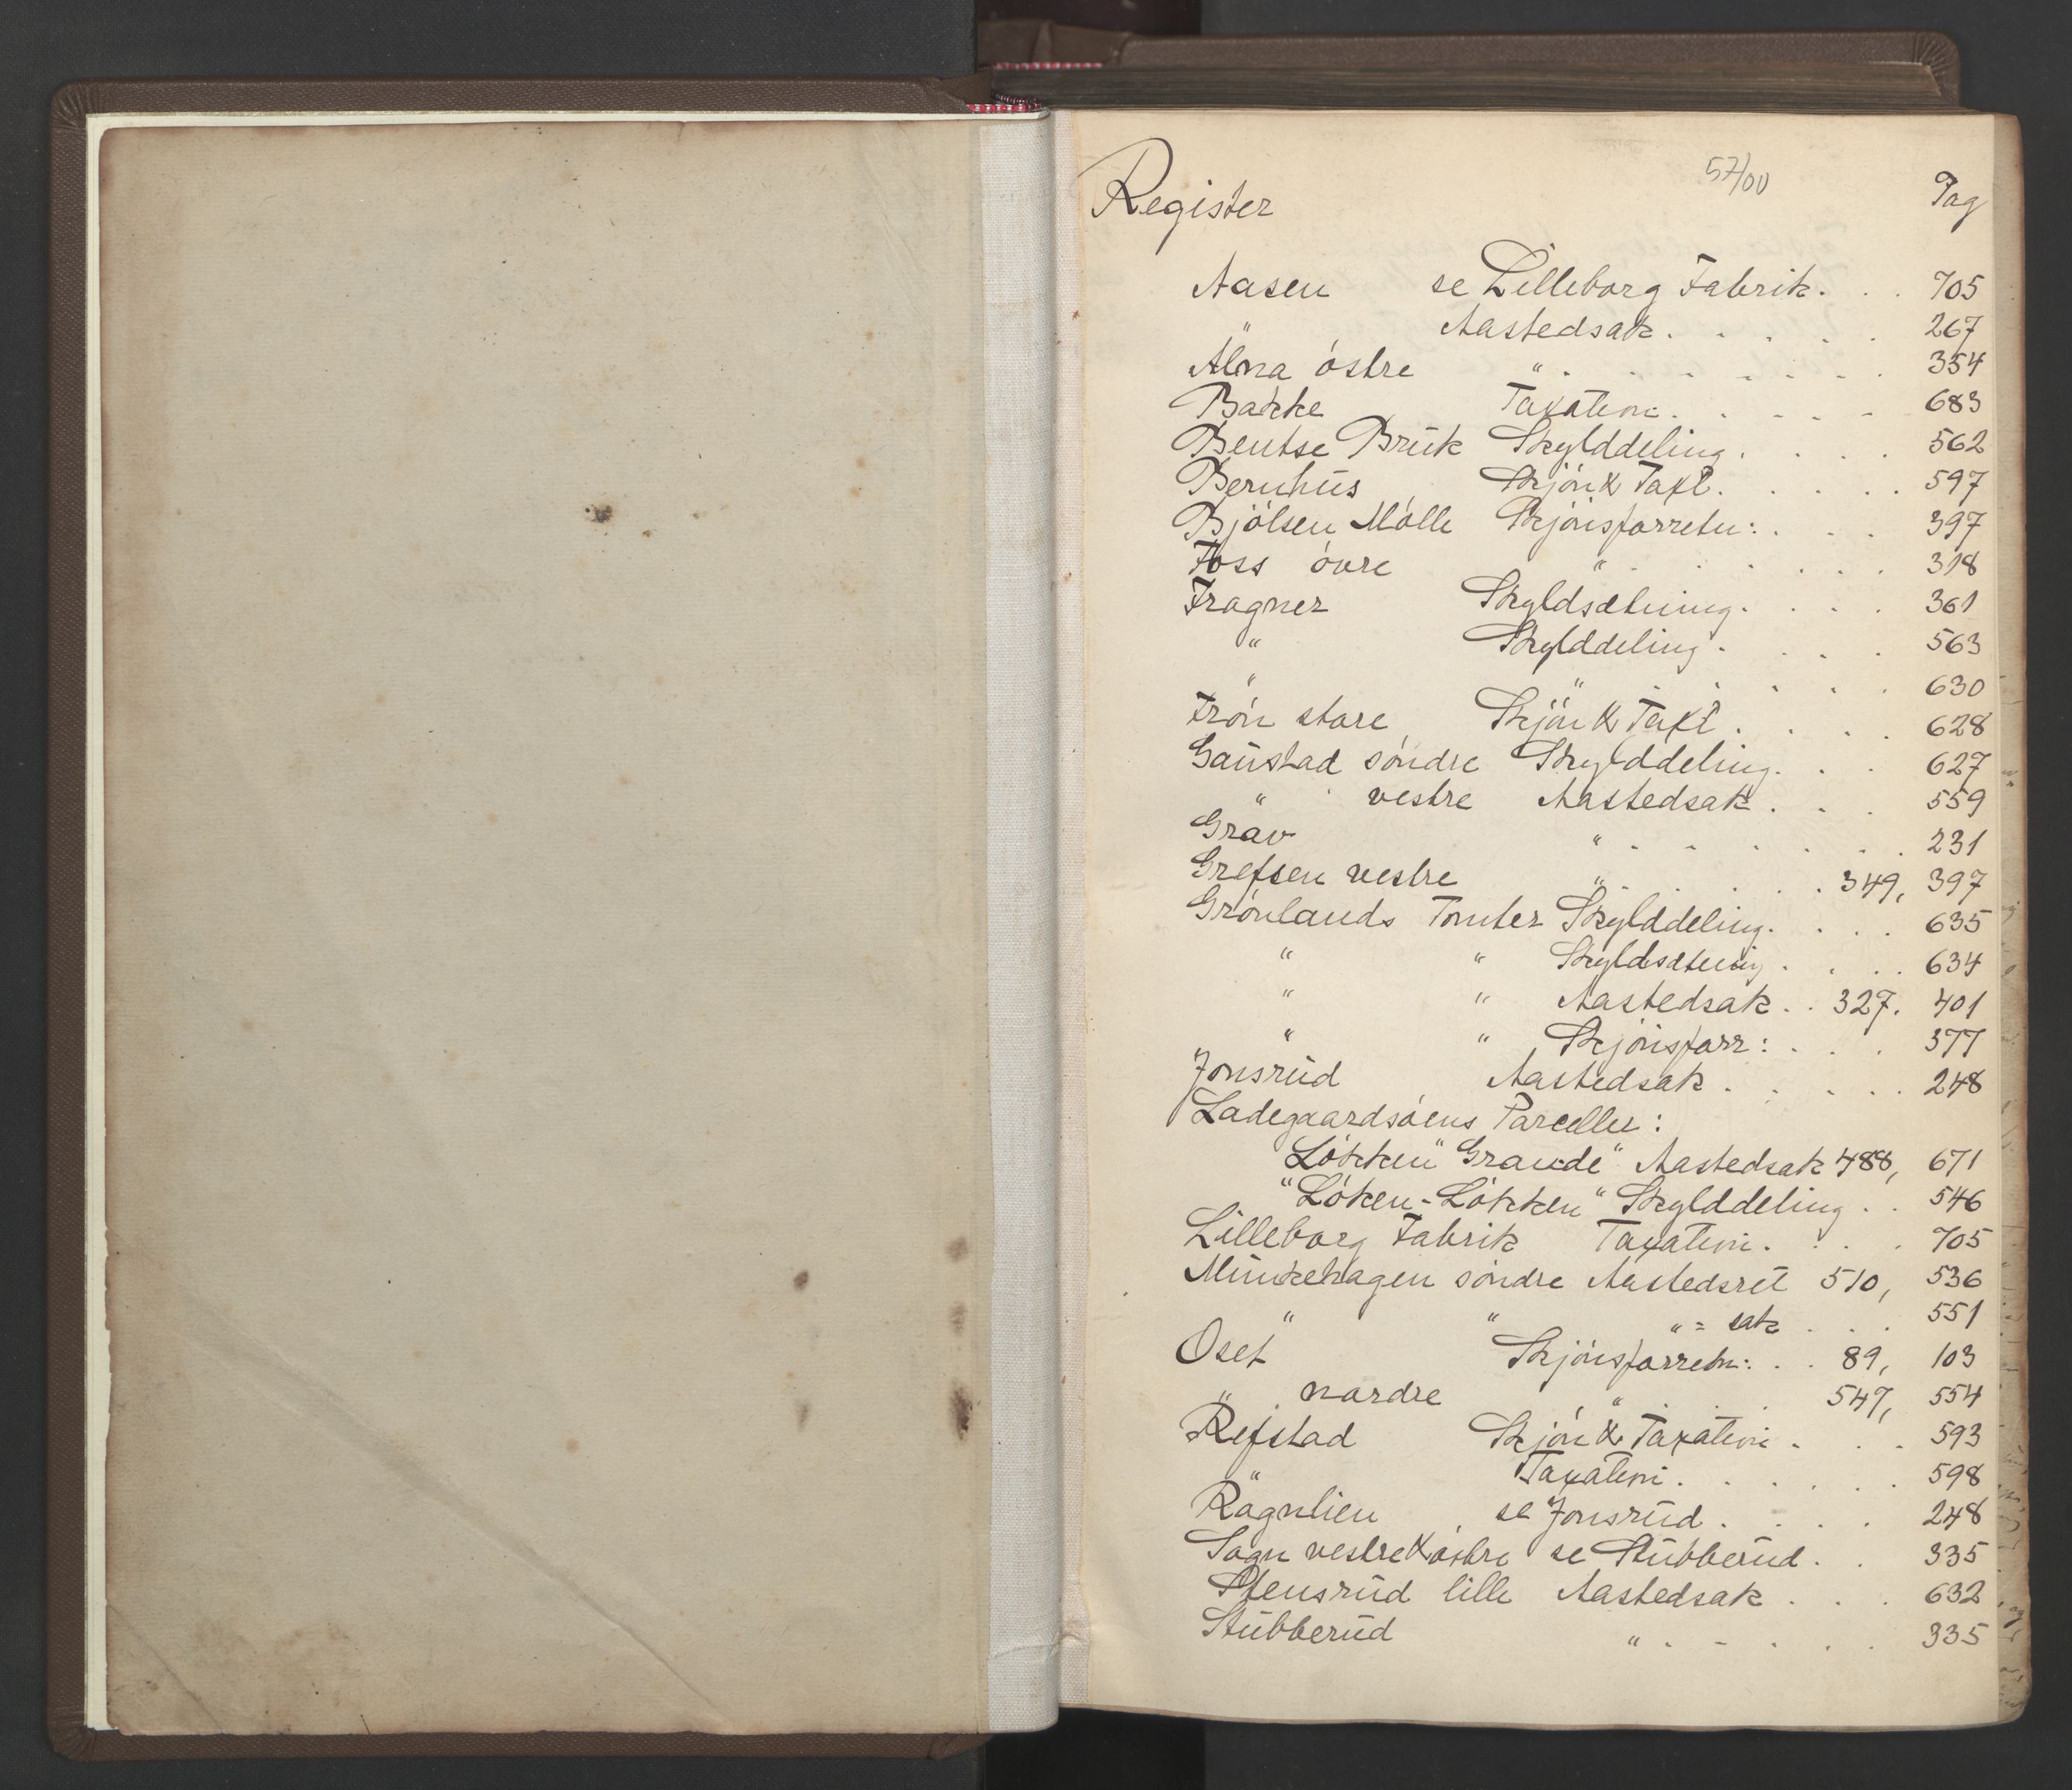 57/00
Register Pag
Aasen se Lilleborg Fabrik . . . 705
" Aastedsak . . . . . 267
Alna östre " . . . . . . . 354
Bakke Taxation . . . . . 683
Bentse Bruk Skylddeling . . . . 562
Bernhus Skjön & Taxt . . . . . 597
Bjölsen Mölle Skjönsforretn: . . . 397
Foss övre " . . . . . . 318
Frogner Skyldsætning . . . . 361
" Skylddeling . . . . 563
" " . . . . . 630
Frön store Skjön & Taxt . . . . 628
Gaustad söndre Skylddeling . . . 627
" vestre Aastedsak . . . 559
Grav " . . . . . . . 231
Grefsen vestre " . . . . . 349, 397
Grönlands Tomter Skylddeling . . . . 635
" " Skyldsætning . . . . 634
" " Aastedsak . . 327. 401
" " Skjönsforr: . . . 377
Jonsrud Aastedsak . . . . . 248
Ladegaardsöens Parceller:
Lökken "Grande" Aastedsak 488, 671
"Löken-Lökken" Skylddeling . . 546
Lilleborg Fabrik Taxation . . . . 705
Munkehagen söndre Aastedsret 510, 536
" " " = sak . . . 551
Oset Skjönsforretn: . . 89, 103
" nordre " . . . 547, 554
Refstad Skjön & Taxation . . . 593
" Taxation . . . . . . 598
Rognlien se Jonsrud . . . . 248
Sogn vestre & östre se Stubberud . . 335
Stensrud lille Aastedsak . . . 632
Stubberud " . - . . . 335